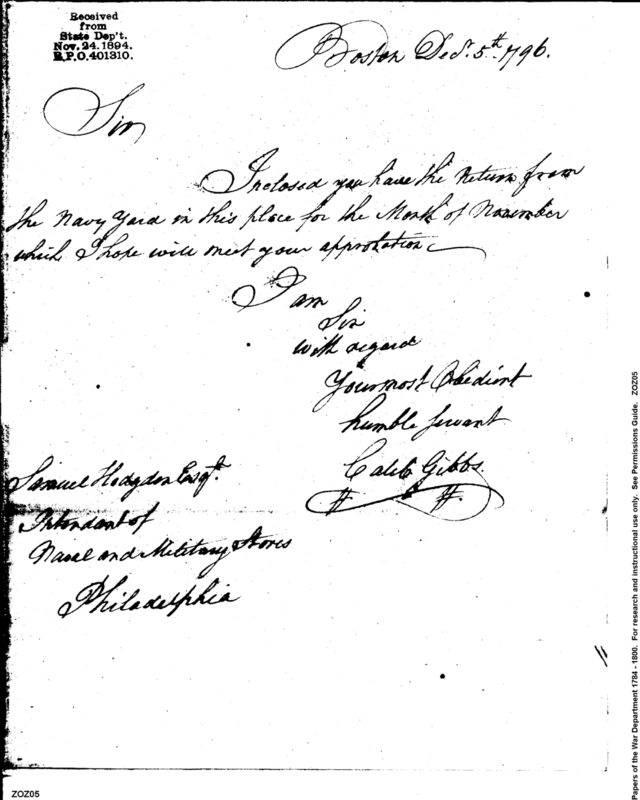 Received
from
State Dep't.
Nov. 24. 1894.
R.P.O. 401310.
Boston Decr. 5th 1796.
Sir
Inclosed you have the Return from
the Navy Yard in this place for the Month of November
which I hope will meet your approbation
I am
Sir
with regard
Your most Obedient
humble servant
Caleb Gibbs
Samuel Hodgdon Esqr.
Intendant of
Naval and Military Stores
Philadelphia
Papers of the War Department 1784 - 1800. For research and instructional use only. See Permissions Guide. ZOZ05
ZOZ05